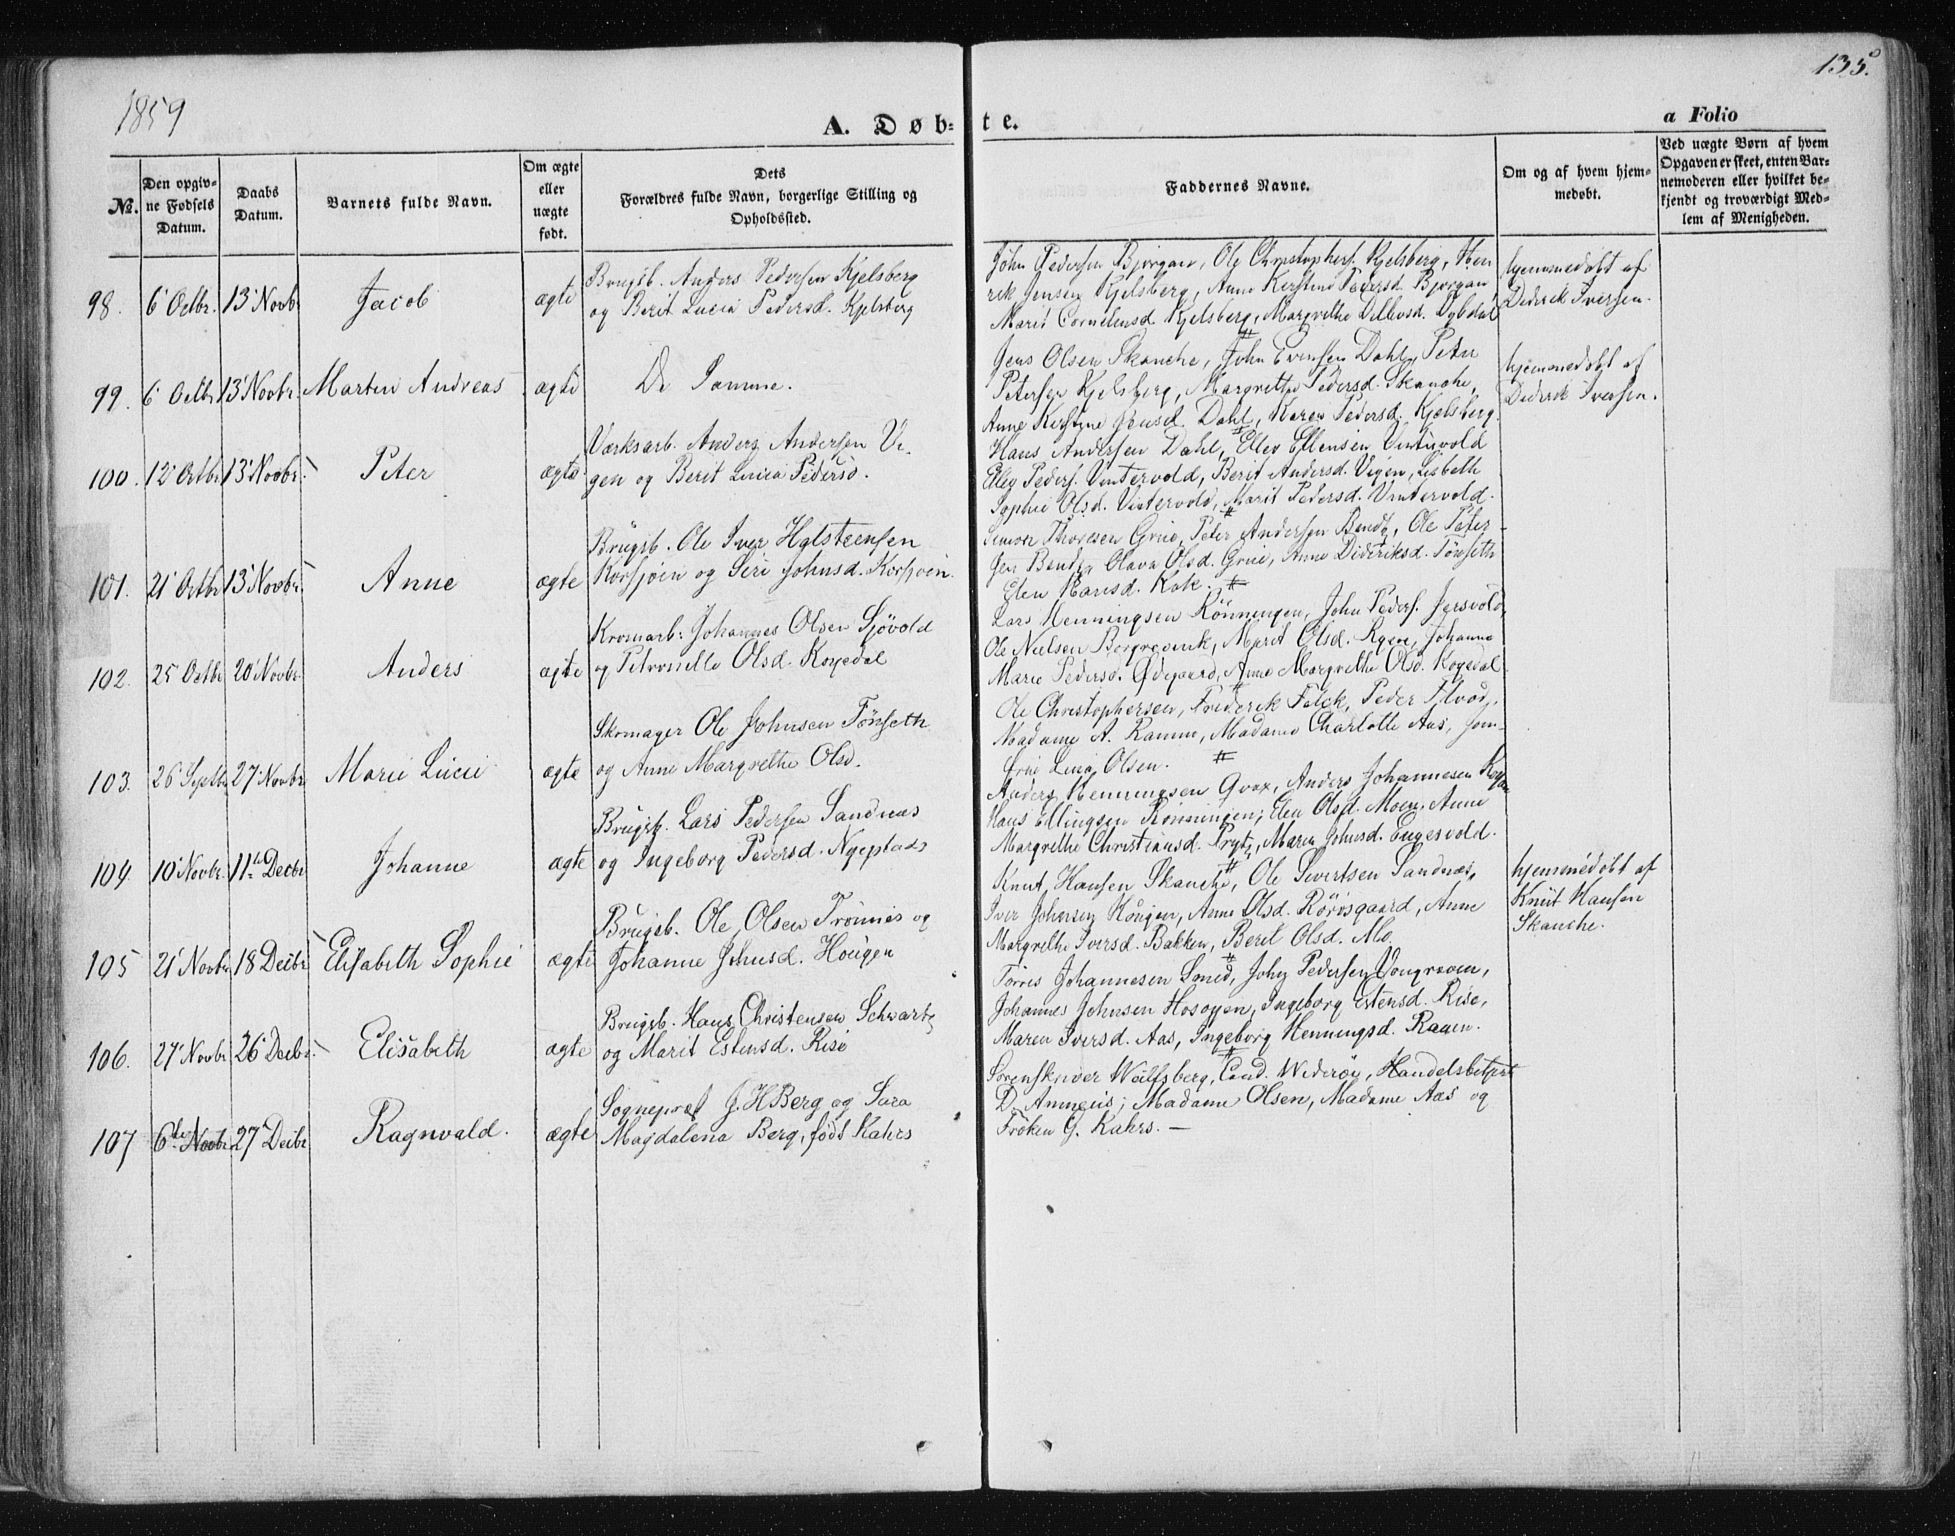 1859
135.
A. Døb=
te.
a Folio
№.
Den opgiv=
ne Fødsels
Datum.
Daabs
Datum.
Barnets fulde Navn.
Om ægte
eller
uægte
født.
Dets
Forældres fulde Navn, borgerlige Stilling og
Opholdssted.
Faddernes Navne.
Om og af hvem hjem=
medøbt.
Ved uægte Børn af hvem
Opgaven er skeet, enten Bar=
nemoderen eller hvilket be=
kjendt og troværdigt Med=
lem af Menigheden.
98. 6 Octbr. 13 Novbr. Jacob ægte
Brugsb. Anders Pedersen Kjelsberg
og Berit Lucia Pedersd. Kjelsberg
John Pedersen Bjørgan, Ole Christophers. Kjelsberg, Hen
rik Jensen Kjelsberg, Anne Kerstine Pedersd. Bjørgan
Marit Corneliusd. Kjelsberg, Margrethe Dybdal
hjemmedøbt af
Dederek Iversen.
99. 6 Octbr 13 Novbr. Martin Andreas ægte De Samme.
Jens Olsen Skanche, John Evensen Dahl, Peter
Petersen Kjelsberg, Margrethe Pedersd. Skanche,
Anne Kerstine Dahl, Karen Pedersd. Kjelsberg.
hjemmedøbt af
Dederek Iversen.
100. 12 Octbr 13 Novbr. Peter ægte
Værksarb. Anders Andersen Vi
gen og Berit Lucia Pedersd.
Hans Andersen Dahl, Ellev Ellensen Vintervold
Elleg Peders. Vintervold, Berit Andersd. Vigen, Lisbeth
Sophie Olsd. Vintervold, Marit Pedersd. Vintervold.
101. 21 Octbr 13 Novbr. Anne ægte
Brugsb. Ole Iver Halsteensen
Korsjøen og Siri Johnsd. Korsjøen.
Simon Thoresen Grue, Peter Andersen Bendt, Ole Peter
Jen Bendt, Olava Olsd. Grue, Anne Dideriksd. Tønseth
Elen Hansd. Kok.
102. 25 Octbr 20 Novbr. Anders ægte
Kromarb: Johannes Olsen Sjøvold
og Petronelle Olsd. Kogedal
Lars Henningsen Rønningen, John Peders. Jersvold,
Ole Nielsen Borgrevink, Marit Olsd. Johanna
Marie Pedersd. Ødegaard, Anne Margrethe Olsd. Kogedal
103. 26 Septbr 27 Novbr. Marie Lucie ægte
Skomager Ole Johnsen Tønseth
og Anne Margrethe Olsd.
Ole Christophersen, Frederik Falck, Peder Floor,
Madame A. Ramm, Madame Charlotte Aas, Jom=
frue Lena Olsen.
104. 10 Novbr. 11te Decbr Johanne ægte
Brugsb. Lars Pedersen Sandnæs
og Ingeborg Pedersd. Nyeplads
Anders Henningsen Qvar, Anders Johannesen
Hans Ellingsen Rønningen, Elen Olsd. Moen, Anne
Margrethe Christiansd. Prytz, Maren Johnsd. Engesvold.
105 21 Novbr 18 Decbr Elisabeth Sophie ægte
Brugsb. Ole Olsen Trønnes og
Johanne Johnsd. Hougen
Knut Hansen Skanche, Ole Sivertsen Sandnæs,
Iver Johnsen Hougen, Anne Olsd. Rørosgaard, Anne
Margrethe Iversd. Bakken, Berit Olsd. Mo.
hjemmedøbt af
Knut Hansen
Skanche.
106. 27 Novbr 26 Decbr. Elisabeth ægte
Brugsb. Hans Christensen Schwartz
og Marit Estensd. Rise
Tørres Johannesen Smed, John Pedersen Vongraven,
Johannes Johnsen Hosøyen, Ingeborg Estensd. Rise,
Maren Iversd. Aas, Ingeborg Henningsd. Raaen.
107 6te Novbr 27 Decbr Ragnvald. ægte
Sogneprest J. H Berg og Sara
Magdalena Berg, født Kahrs
Sorenskriver Wulfsberg, Cand. Widerøe, Handelsbetjent
D. Anmeus; Madame Olsen, Madame Aas og
Frøken G. Kahrs. —